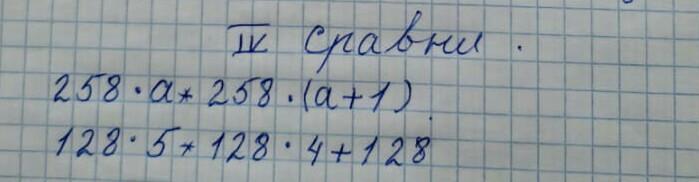 IV Сравни.
258·a * 258·(a+1)
128·5 * 128·4+128